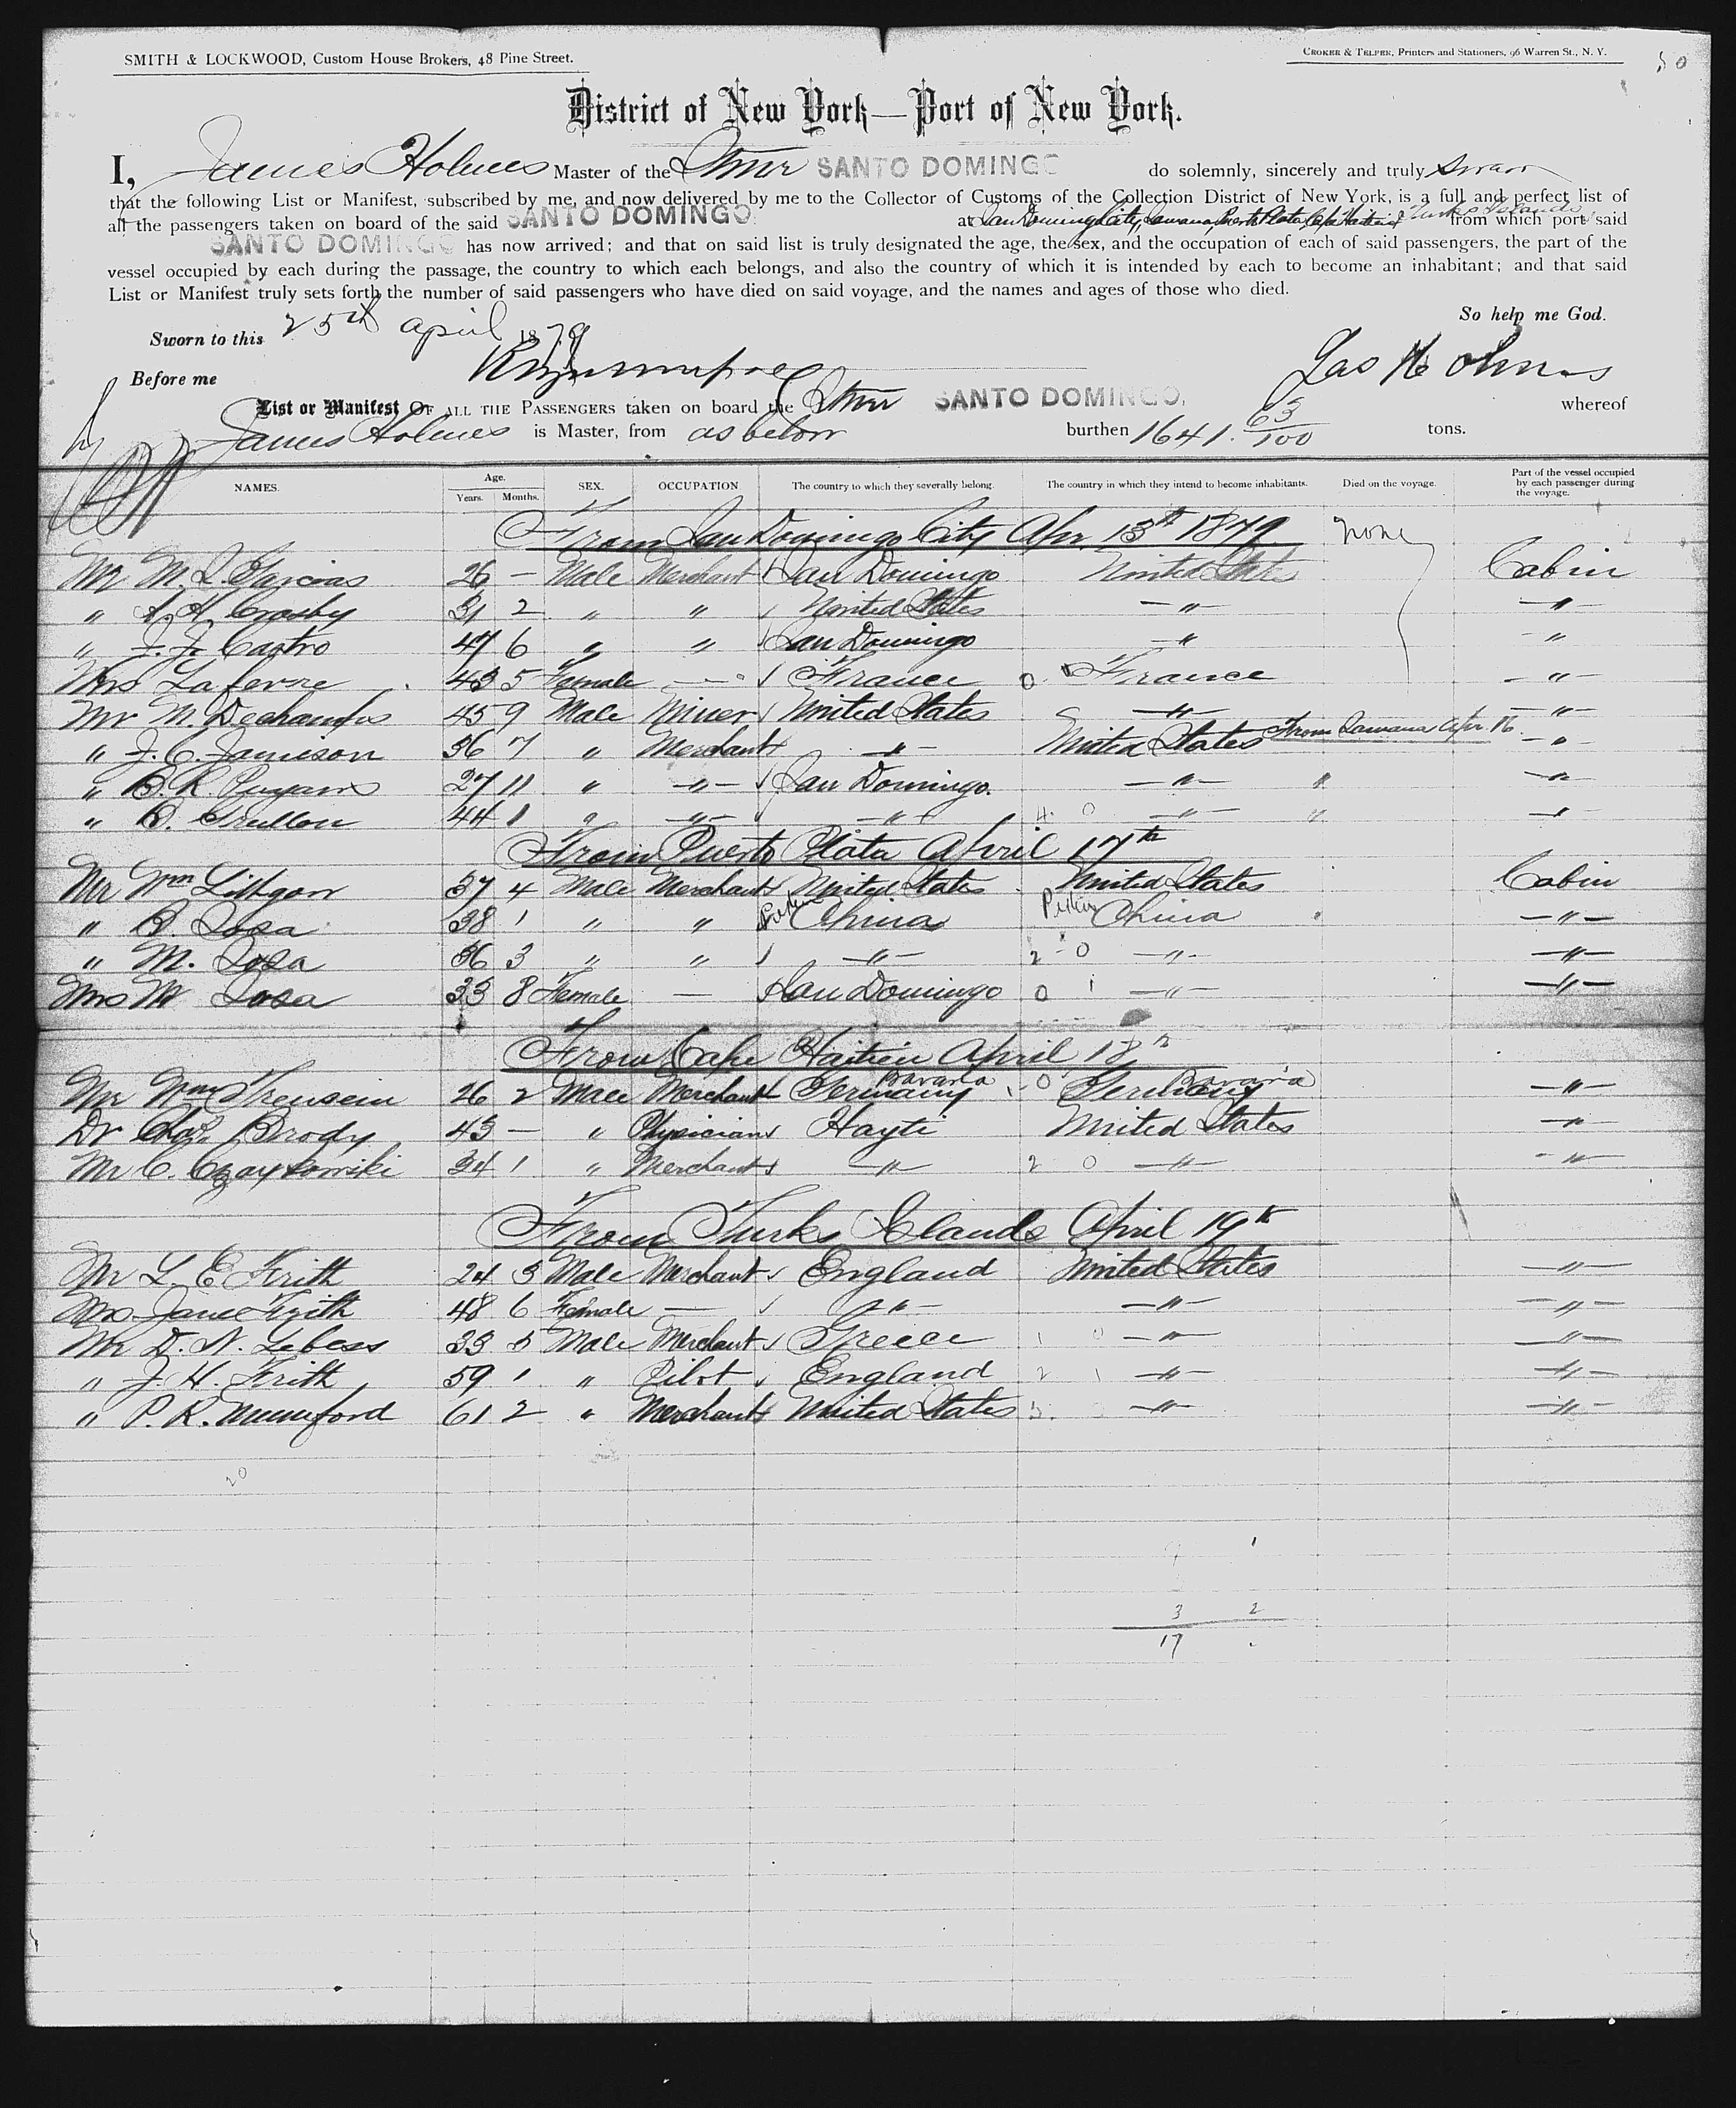 SMITH & LOCKWOOD, Custom House Brokers, 48 Pine Street.
CROKER & TELFER, Printers and Stationers, 96 Warren St., N. Y.
50
District of New York—Port of New York.
I, James Holmes Master of the Stmr SANTO DOMINGO do solemnly, sincerely and truly Swear
that the following List or Manifest, subscribed by me, and now delivered by me to the Collector of Customs of the Collection District of New York, is a full and perfect list of
all the passengers taken on board of the said SANTO DOMINGO at San Domingo City, Samana, Puerto Plata, Cape Haitien & Turks Islands from which port said
SANTO DOMINGO has now arrived; and that on said list is truly designated the age, the sex, and the occupation of each of said passengers, the part of the
vessel occupied by each during the passage, the country to which each belongs, and also the country of which it is intended by each to become an inhabitant; and that said
List or Manifest truly sets forth the number of said passengers who have died on said voyage, and the names and ages of those who died.
So help me God.
Sworn to this 25th April 1879
Before me
Jas Holmes
List or Manifest OF ALL THE PASSENGERS taken on board the Stmr SANTO DOMINGO, whereof
James Holmes is Master, from as below burthen 1641. 63/100 tons.
NAMES. Age. Years. Months. SEX. OCCUPATION The country to which they severally belong. The country in which they intend to become inhabitants. Died on the voyage. Part of the vessel occupied by each passenger during the voyage.
From San Domingo City Apr. 13th 1879 None
Mr M. L. Garcias 26 — Male Merchant San Domingo United States Cabin
" A. H. Crosby 31 2 " " United States — " — — " —
" J. J. Castro 47 6 " " San Domingo — " — " —
Mrs Lafevre 43 5 Female — France 0 France — " —
Mr M. Dechamfus 45 9 Male Miner United States — " — — " —
" J. C. Jamieson 36 7 " Merchant — " — United States From Samana Apr. 16 — " —
" B. R. 27 11 " — " — San Domingo. — " — " — " —
" B. Grullon 44 1 " — " — — " — 4 0 — " — " — " —
From Puerto Plata April 17th
Mr Wm Lithgow 37 4 Male Merchant United States United States Cabin
" B. Sosa 38 1 " " Pekin China Pekin China — " —
" M. Sosa 36 3 " " — " — 2 - 0 — " — — " —
Mrs M Sosa 33 8 Female — San Domingo 0 1 — " — — " —
From Cape Haitien April 18th
Mr Wm 26 2 Male Merchant Germany Bavaria - 0 Germany Bavaria — " —
Dr Chas. Brody 43 — " Physician Hayti United States — " —
Mr C. Czaykowski 34 1 " Merchant — " — 2 0 — " — — " —
From Turks Islands April 19th
Mr L. E. Frith 24 3 Male Merchant England United States — " —
Mrs Jane Frith 48 6 Female — — " — — " — — " —
Mr D. N. Lebess 33 5 Male Merchant Greece 1 0 — " — — " —
" J. H. Frith 59 1 " Pilot England 2 1 — " — — " —
" P. R. Mumford 61 2 " Merchant United States 3. 0 — " — — " —
20
9 1
3 2
17